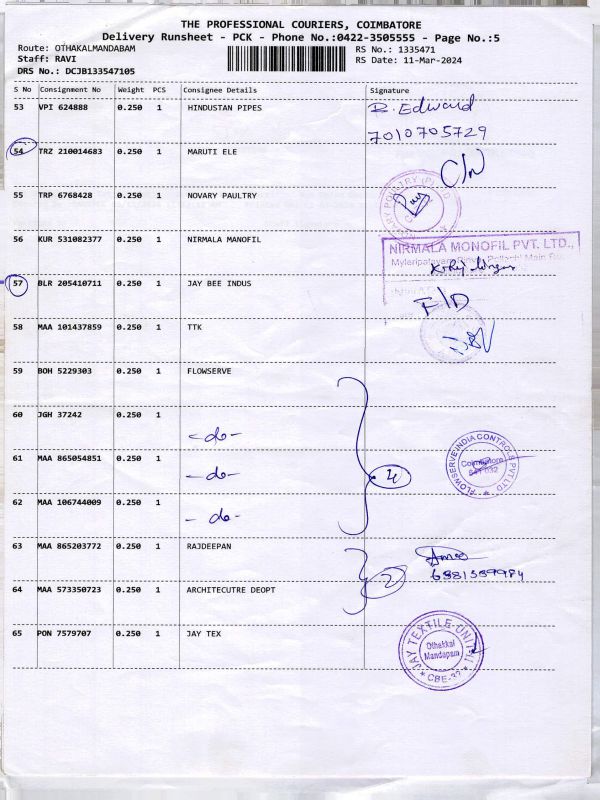 THE PROFESSIONAL COURIERS, COIMBATORE
Delivery Runsheet - PCK - Phone No.:0422-3505555 - Page No.:5
Route: OTHAKALMANDABAM
RS No.: 1335471
Staff: RAVI
RS Date: 11-Mar-2024
DRS No.: DCJB133547105
S No Consignment No Weight PCS Consignee Details Signature
53 VPI 624888 0.250 1 HINDUSTAN PIPES R. Edward
7010705729
54 TRZ 210014683 0.250 1 MARUTI ELE
C/N
55 TRP 6768428 0.250 1 NOVARY PAULTRY
56 KUR 531082377 0.250 1 NIRMALA MANOFIL
NIRMALA MONOFIL PVT. LTD.,
57 BLR 205410711 0.250 1 JAY BEE INDUS
F/D
58 MAA 101437859 0.250 1 TTK
59 BOH 5229303 0.250 1 FLOWSERVE
60 JGH 37242 0.250 1
-do-
61 MAA 865054851 0.250 1
-do-
4
FLOWSERVE INDIA CONTROLS PVT LTD
Coimbatore
641 032
62 MAA 106744009 0.250 1
-do-
63 MAA 865203772 0.250 1 RAJDEEPAN
2
64 MAA 573350723 0.250 1 ARCHITECUTRE DEOPT
65 PON 7579707 0.250 1 JAY TEX
JAY TEXTILE-UNIT-II
Othakkal
Mandapam
CBE-32